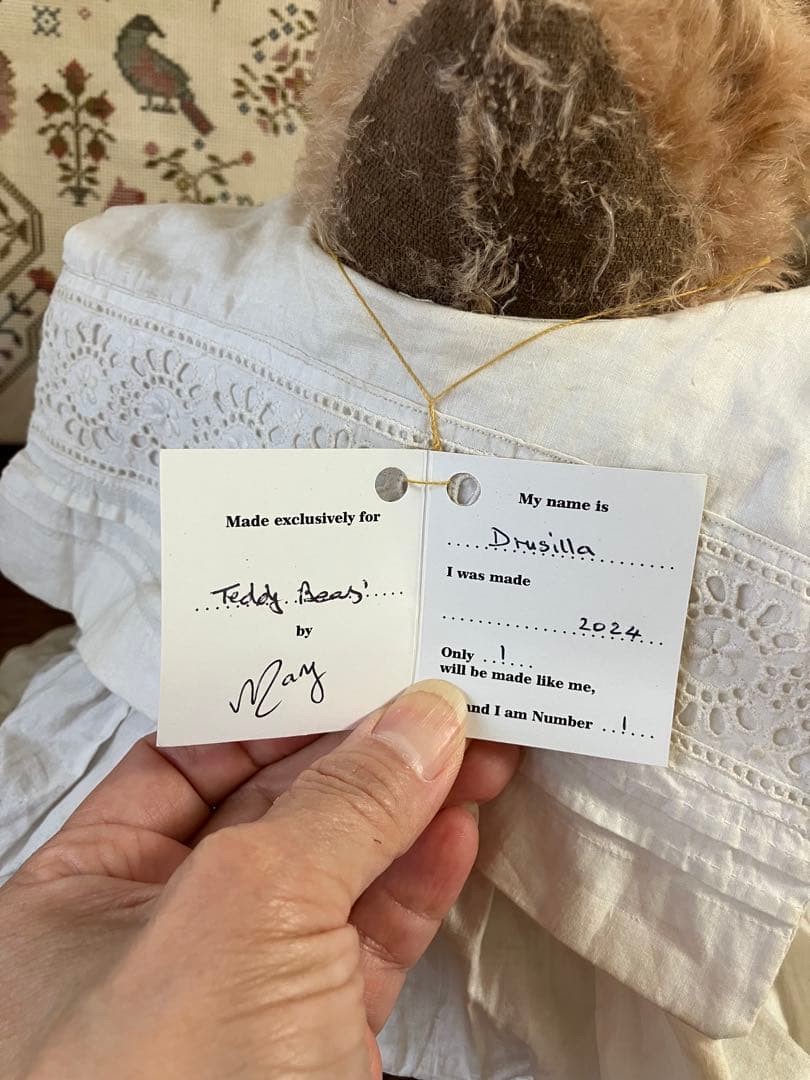 Made exclusively for
Teddy Bears'
by
Mary
My name is
Drusilla
I was made
2024
Only 1
will be made like me,
and I am Number 1